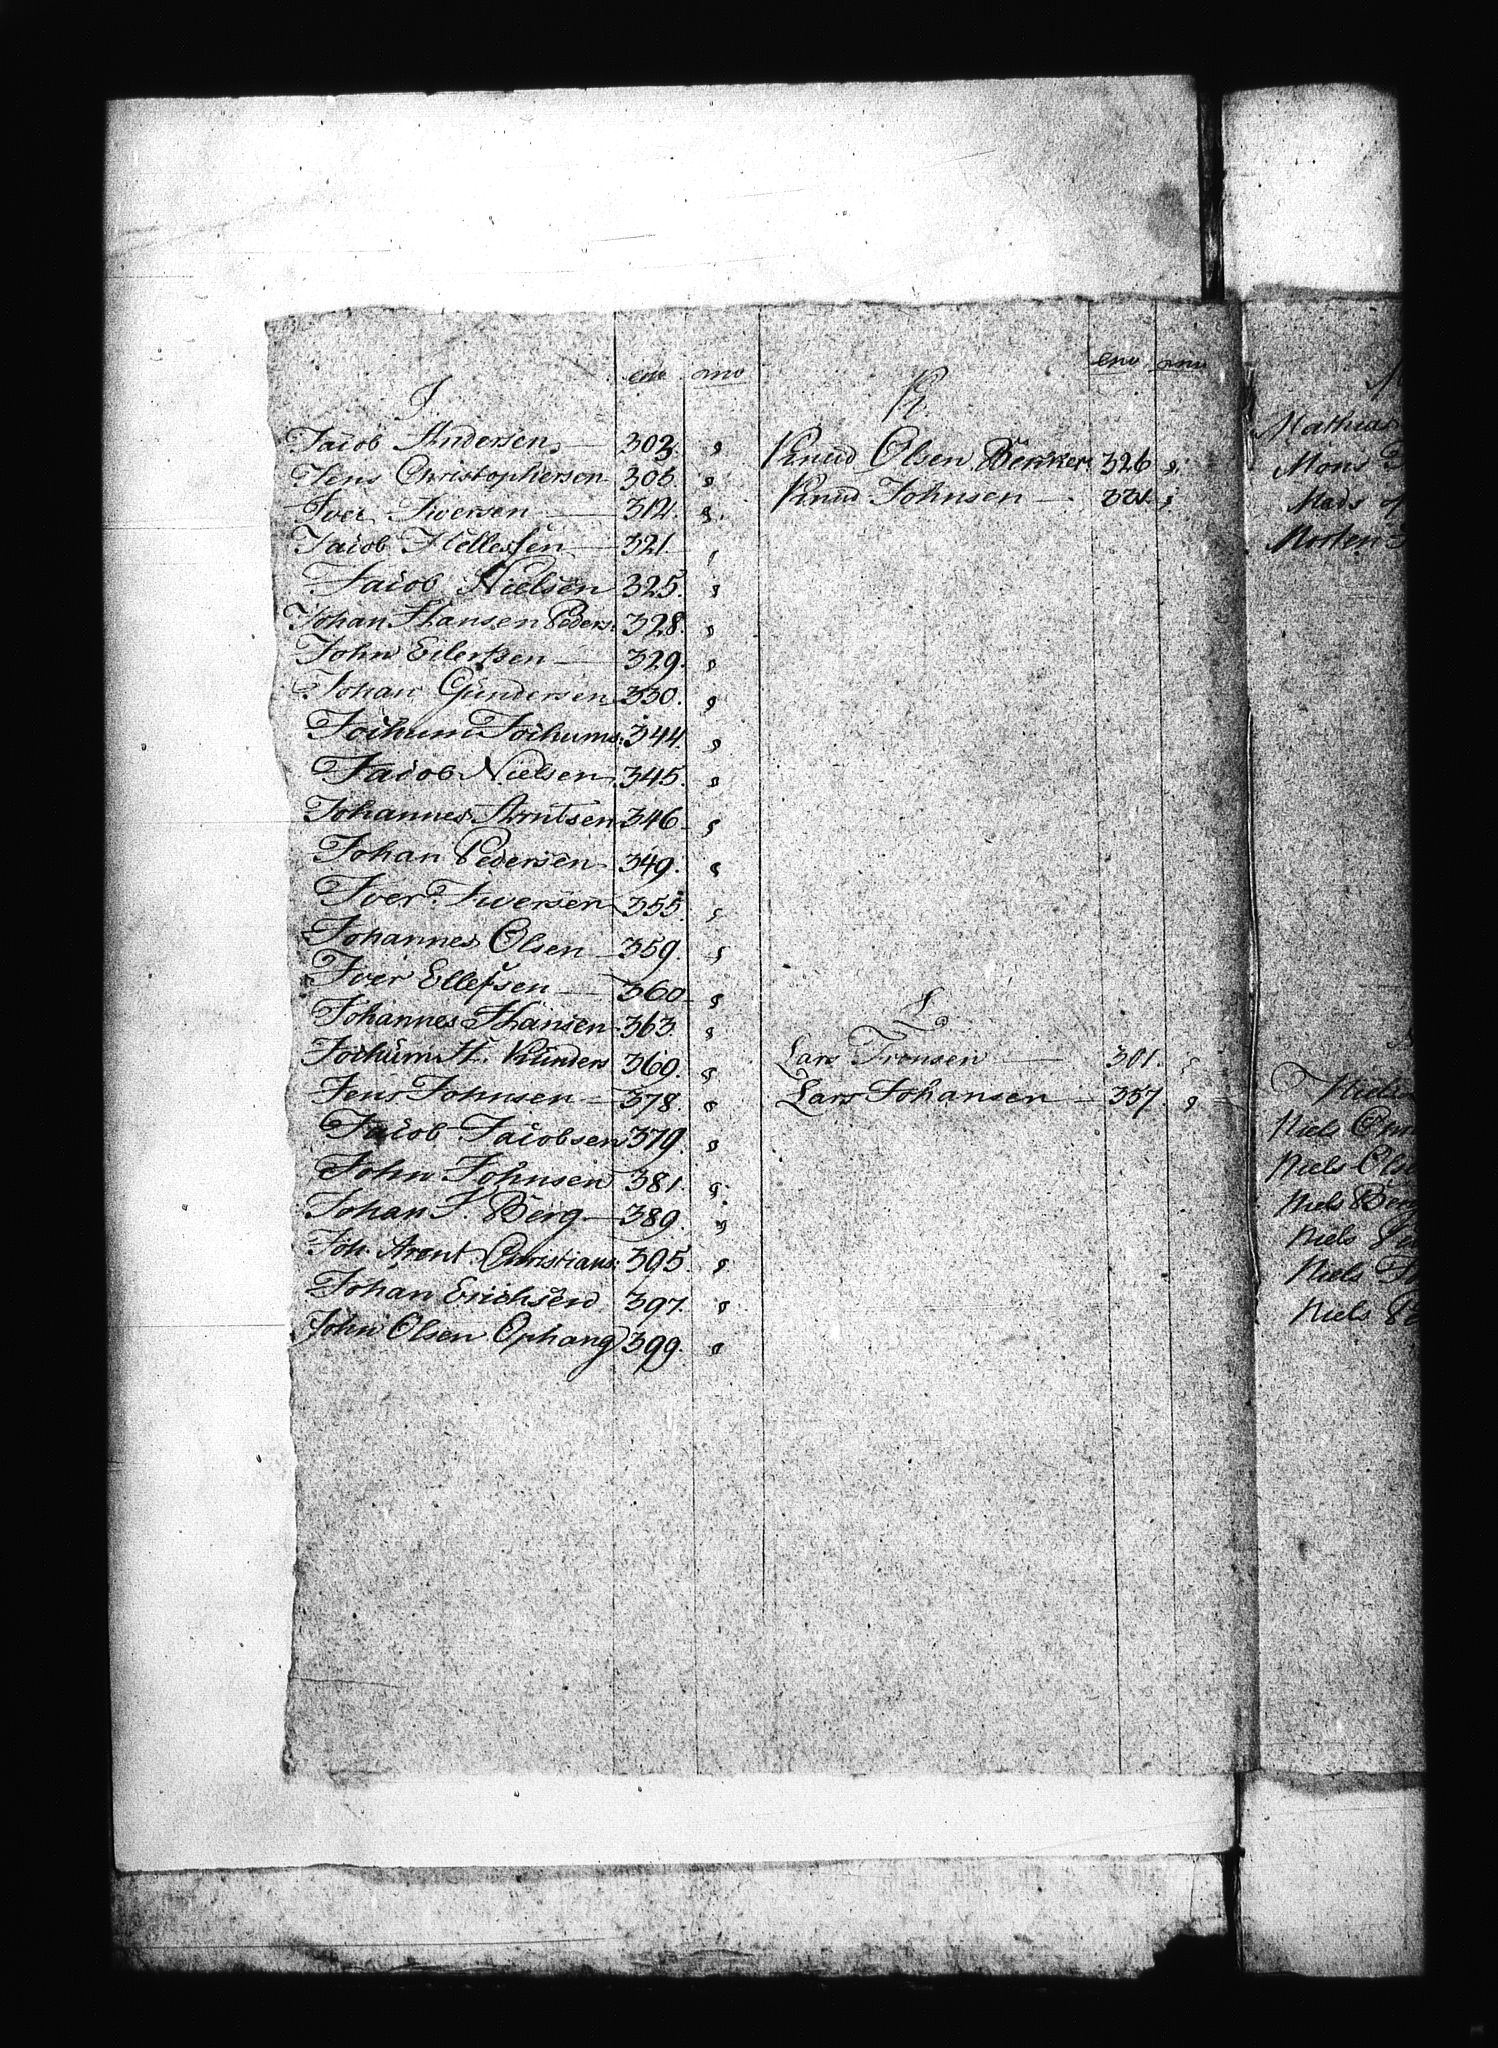 J
Jacob Andersen 303.
Jens Christophersen 305
Iver Iversen 314.
Jacob Hellessen 321.
Jacob Nielsen 325.
Johan Hansen Peders: 328.
John Eilertsen 329.
Johan Gundersen 330.
Jochum Jochums: 344.
Jacob Nielsen 345.
Johannes Arntsen 346
Johan Pedersen 349.
Iver Iversen 355
Johannes Olsen 359.
Iver Ellefsen 360
Johannes Hansen 363.
Jochum H. Kunders 369.
Jens Johnsen 378.
Jacob Jacobsen 379.
John Johnsen 381.
Johan J. Berg 389.
Joh. Arent Christians: 395.
Johan Erichsen 397.
John Olsen Ophaug 399.
K
Knud Olsen Benker 326
Knud Johnsen
L
Lars Tronsen 301.
Lars Johansen 357.
Mathias
Mons
Mads
Morten
Niels
Niels
Niels Ols
Niels Berg
Niels
Niels
Niels